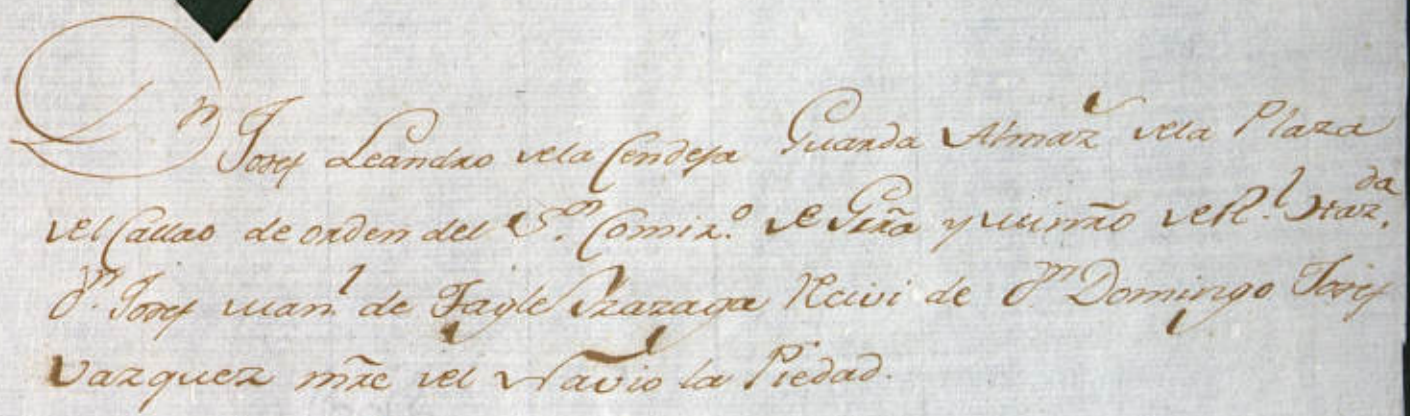 Dn Josef Leandro dela Cendeja Guarda Almaz.n dela Plaza
del Callao de orden del S.or Comis.o de Grra y Minrõ de Rl Haz.da
Dn Josef Man.l de Tagle Ysazaga Recivi de Dn Domingo Josef
Vazquez mrẽ del Navio la Piedad.